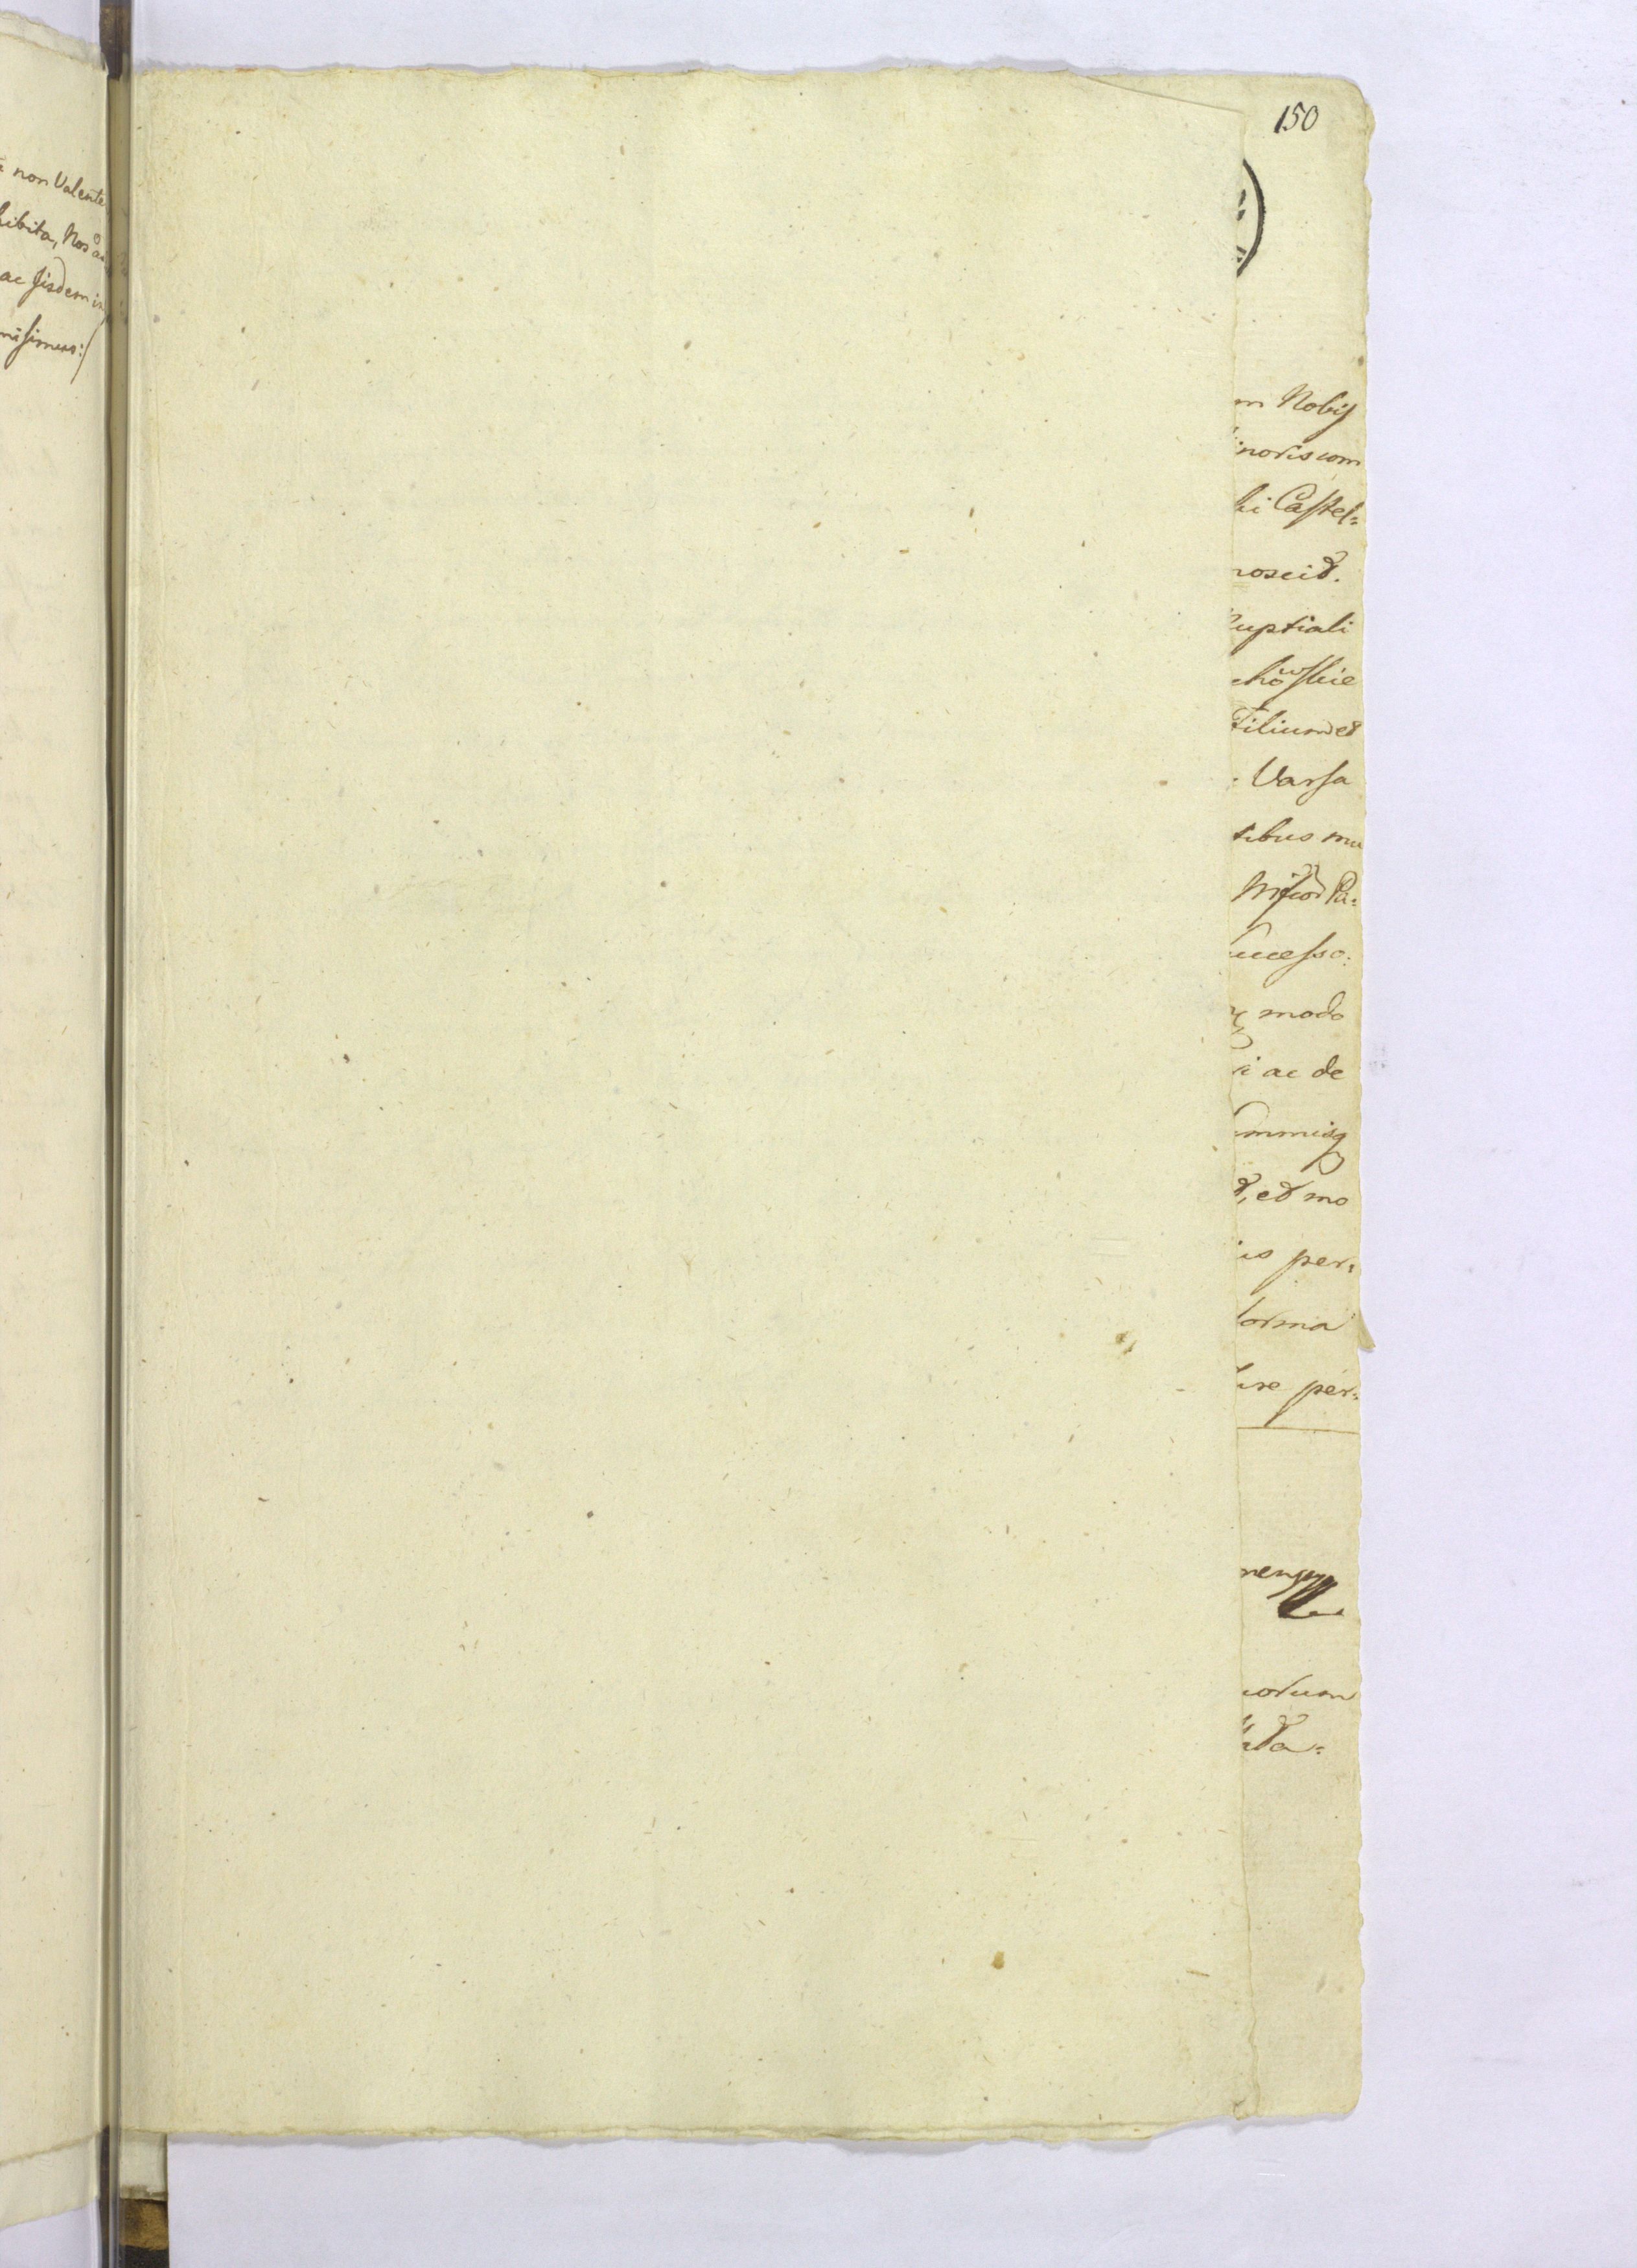 non Valente
hibita, Nos
ac jisdem in
misimus:/
150
m Nobis
noris com
ki Castel=
noscit.
uptiali
chowskie
Filium et
Varsa
tibus mu
Pa=
uccesso:
modo
i ac de
ummisq
t, et mo
is per=
forma
ure per=
orum